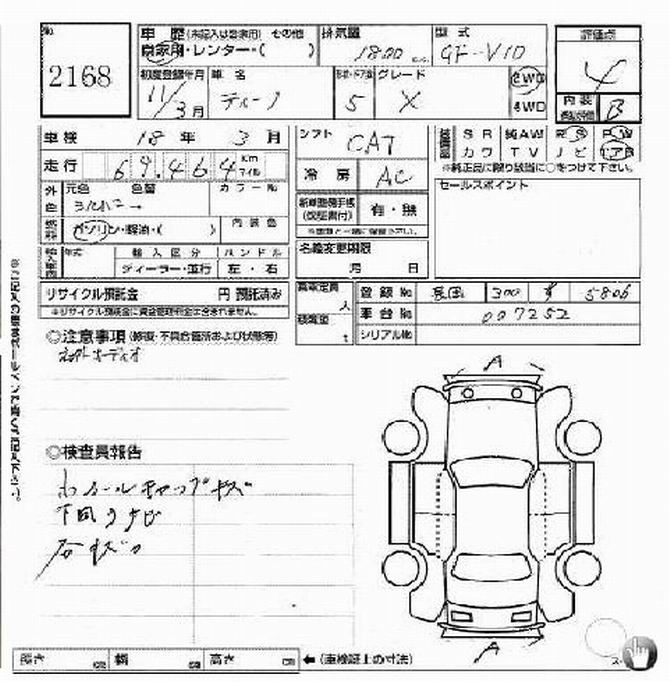 No.
2168
車歴 (未記入は自家用) その他
自家用・レンター・( )
排気量
1800 c.c.
型式
GF-V10
評価点
4
初度登録年月
11/3月
車名
ティーノ
ドア
5
グレード
X
2WD
4WD
内装
B
車検 18年 3月
シフト CAT
SR 純AW PS PW
カワ TV ナビ エアB
※純正品に限り該当に○をつけて下さい。
走行 69,464 Km マイル
冷房 AC
セールスポイント
外色 元色 色替 カラーNo
新車整備手帳 (保証書付) 有・無
燃料 ガソリン・軽油・( ) 内装色
名義変更期限
月 日
輸入車 年式 輸入区分 ハンドル
ディーラー・並行 左・右
リサイクル預託金 円 預託済み
※リサイクル預託金に資金管理料金は含まれません。
乗車定員 人
積載量 t
登録No 300 5806
車台No 007252
シリアルNo
◎注意事項 (修復・不具合箇所および状態等)
社外オーディオ
A
◎検査員報告
ホイールキャップキズ
下回りサビ
石キズ
A
長さ cm 幅 cm 高さ cm ←(車検証上の寸法)